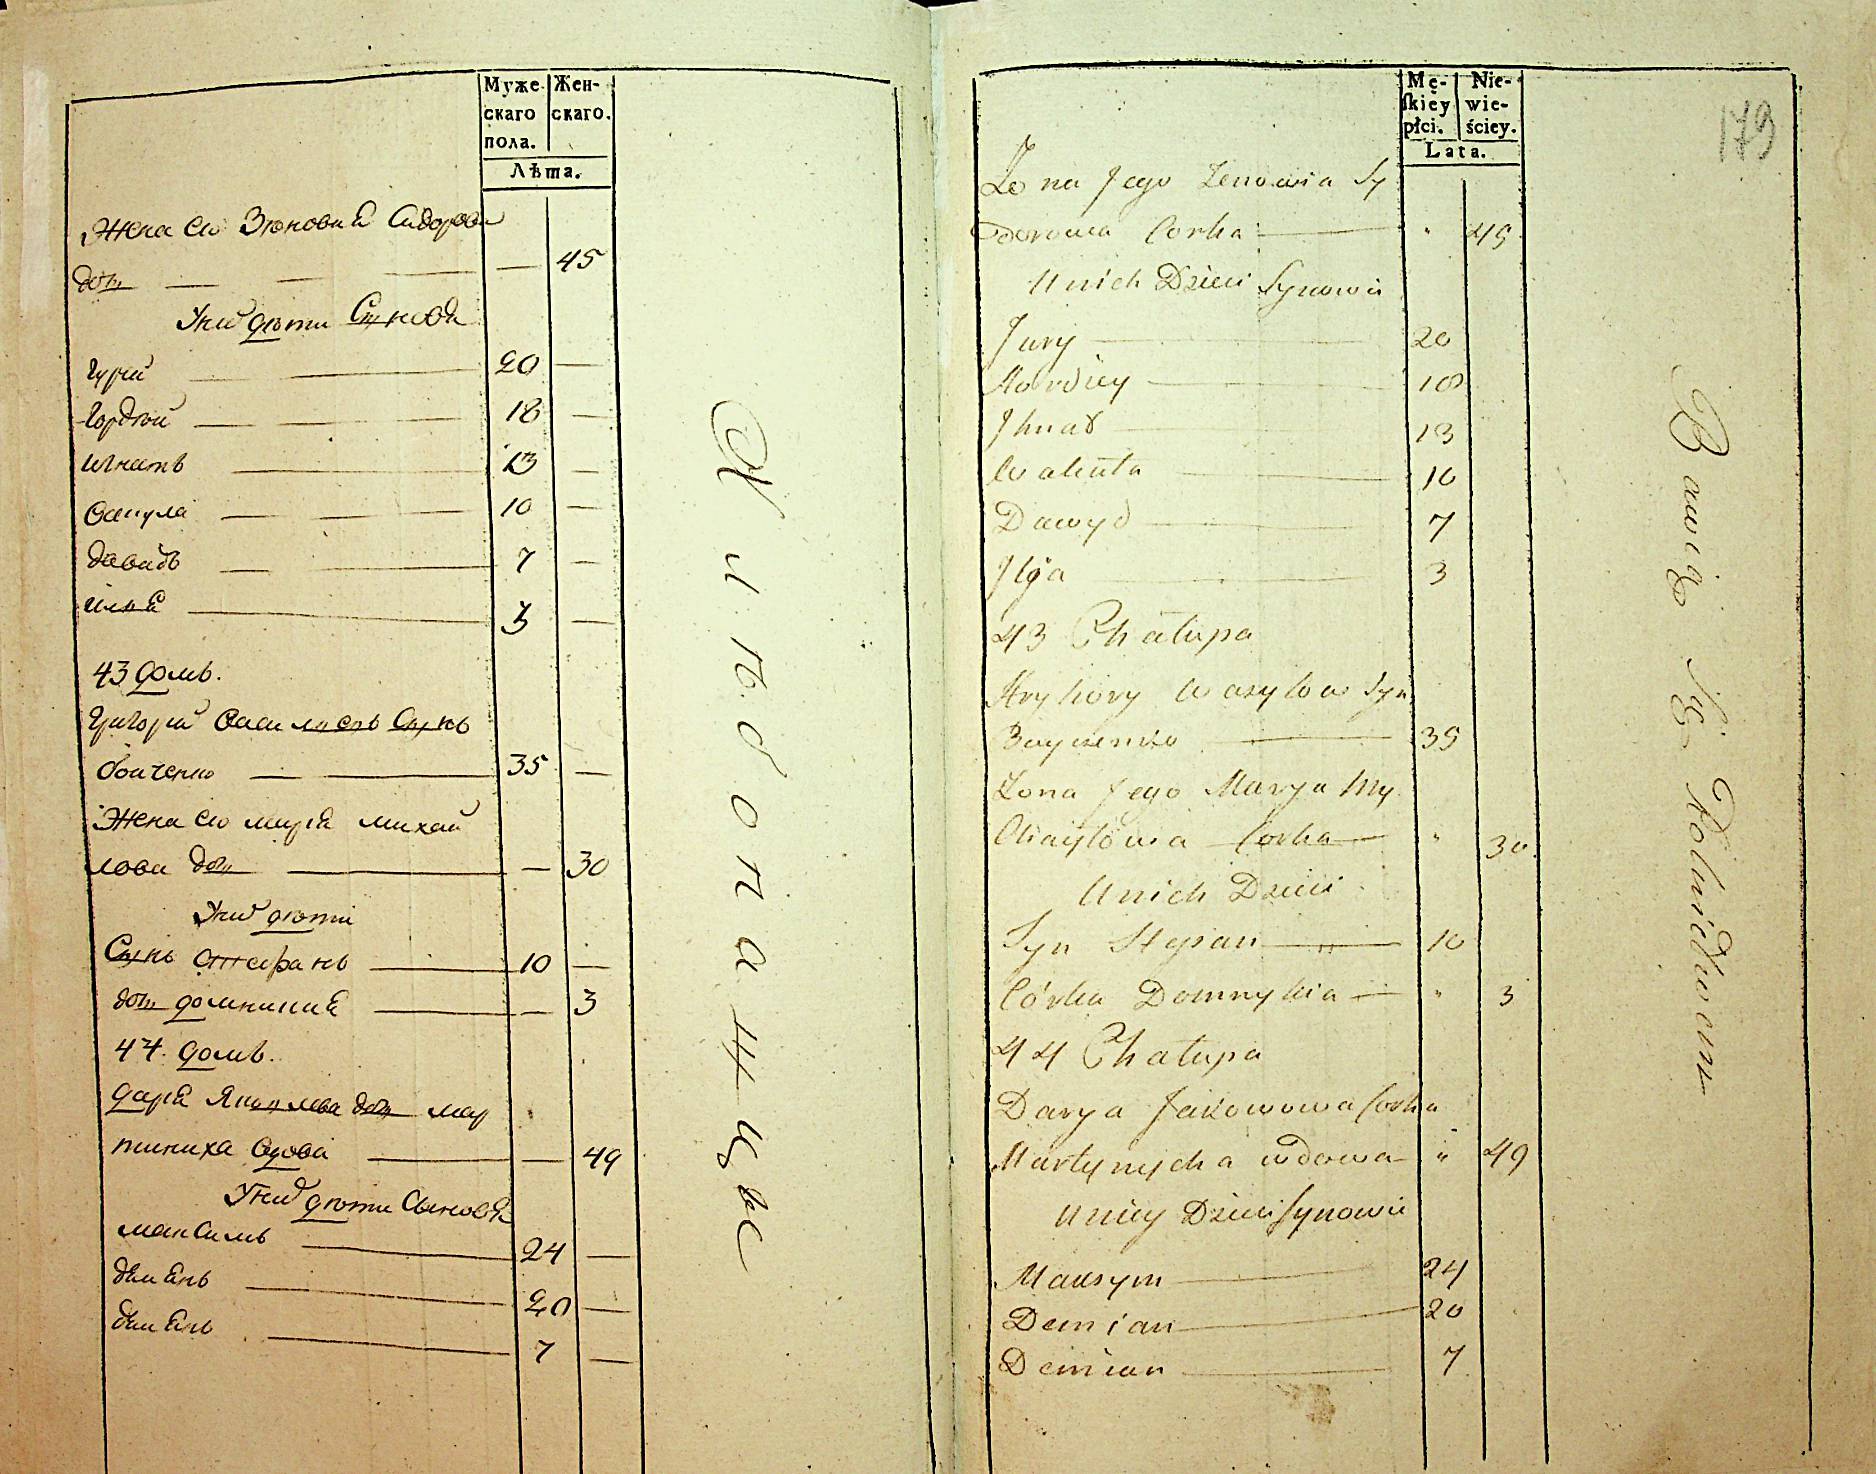 Муже-
скаго
пола.
Жен-
скаго.
Лѣта.
Жена его Зѣновия Сидорова
дочь — 45
У них дѣти Сыновя
Гурій 20 —
Гордѣй 18 —
Игнатъ 13 —
Вакула 10 —
давидъ 7 —
илія 3 —
43 домъ.
Григорій Василиевъ Сынъ
боиченко 35 —
Жена его марія михай
лова дочь — 30
У них дѣти
Сынъ Стефанъ 10 —
дочь домникия — 3
44. домъ.
дарія Яковлева дочь мар
тиниха вдова — 49
У ней дѣти Сыновя
максимъ 24 —
демянъ 20 —
демянъ 7 —
Хлѣбопашце
Mę-
skiey
płci.
Nie-
wie-
ściey.
Lata.
179
Żona Jego Zenowia Sy
derowa Corka " 45
U nich Dzieci Synowie
Jury 20
Hordiey 18
Ihnat 13
Wakuła 10
Dawyd 7
Ilja 3
43 Chałupa
Hryhory Wasylow Syn
Bayczenko 35
Żona Jego Marya My
chayłowa Corka " 30
U nich Dzieci
Syn Stepan 10
Córka Domnykia " 3
44 Chałupa
Darya Jakowowa Corka
Martynycha wdowa " 49
U niey Dzieci Synowie
Maksym 24
Demian 20
Demian 7
Bawią Się Rolnictwem